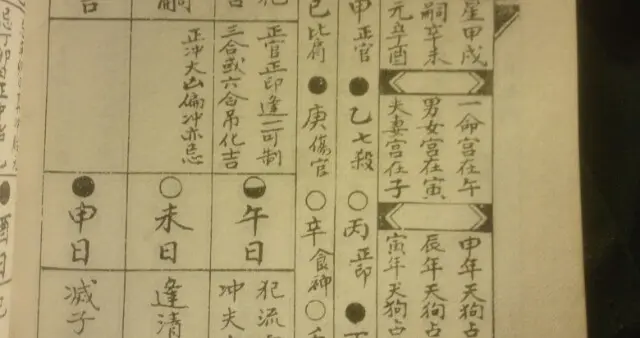 星甲戌
嗣辛未
元辛酉
一命宫在午
男女宫在寅
夫妻宫在子
申年天狗占
辰年天狗占
寅年天狗占
甲正官
乙七殺
丙正印
己比肩
庚傷官
辛食神
正官正印逢一可制
三合或六合吊化吉
正冲大凶偏冲亦忌
午日
未日
申日
犯流
冲夫
逢清
减子
酉日